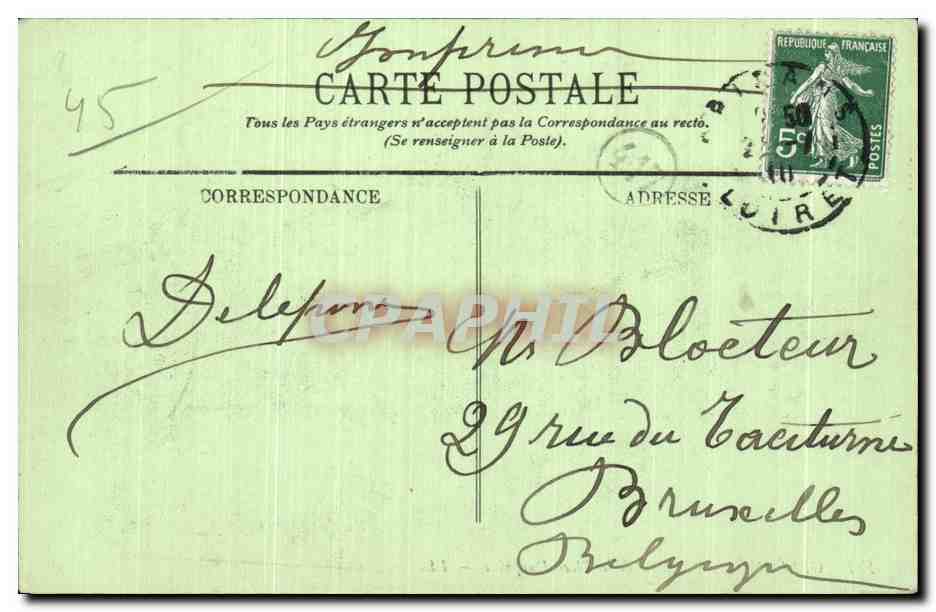 Imprimé
CARTE POSTALE
Tous les Pays étrangers n'acceptent pas la Correspondance au recto.
(Se renseigner à la Poste).
45
REPUBLIQUE FRANÇAISE
5c
POSTES
50
10
LOIRET
CORRESPONDANCE
ADRESSE
Mr Blocteur
29 rue du Taciturne
Bruxelles
Belgique
CPAPHIL